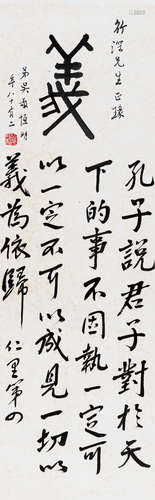 義
先生正
孔子說君子對於天
下的事不固執一定可
以一定不可以成見一切以
義為依歸 仁里第四
弟吳敬恆時
年八十有二